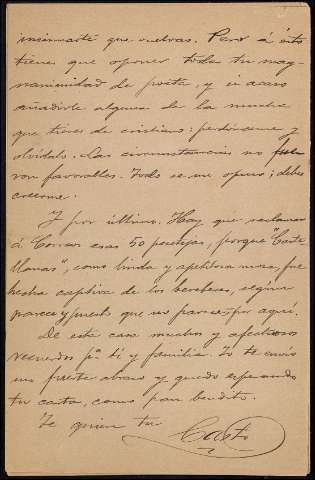 insinuarte que vuelvas. Pero á ésto
tienes que oponer toda tu mag-
nanimidad de poeta, y si acaso
añadirle alguna de la mucha
que tienes de cristiano: perdóname y
olvídalo. Las circunstancias no fue
ron favorables. Todo se me opuso; debes
creerme.
Y por último. Hay que reclamar
á esas 50 pesetejas, porque "Caste
llanas", como linda y apetitosa mora, fue
hecha cautiva de los bereberes, según
parece y puesto que no parece por aquí.
De esta casa muchos y afectuosos
recuerdos pª ti y familia. Yo te envío
un fuerte abrazo y quedo esperando
tu carta, como pan bendito.
Te quiere tu
Casto